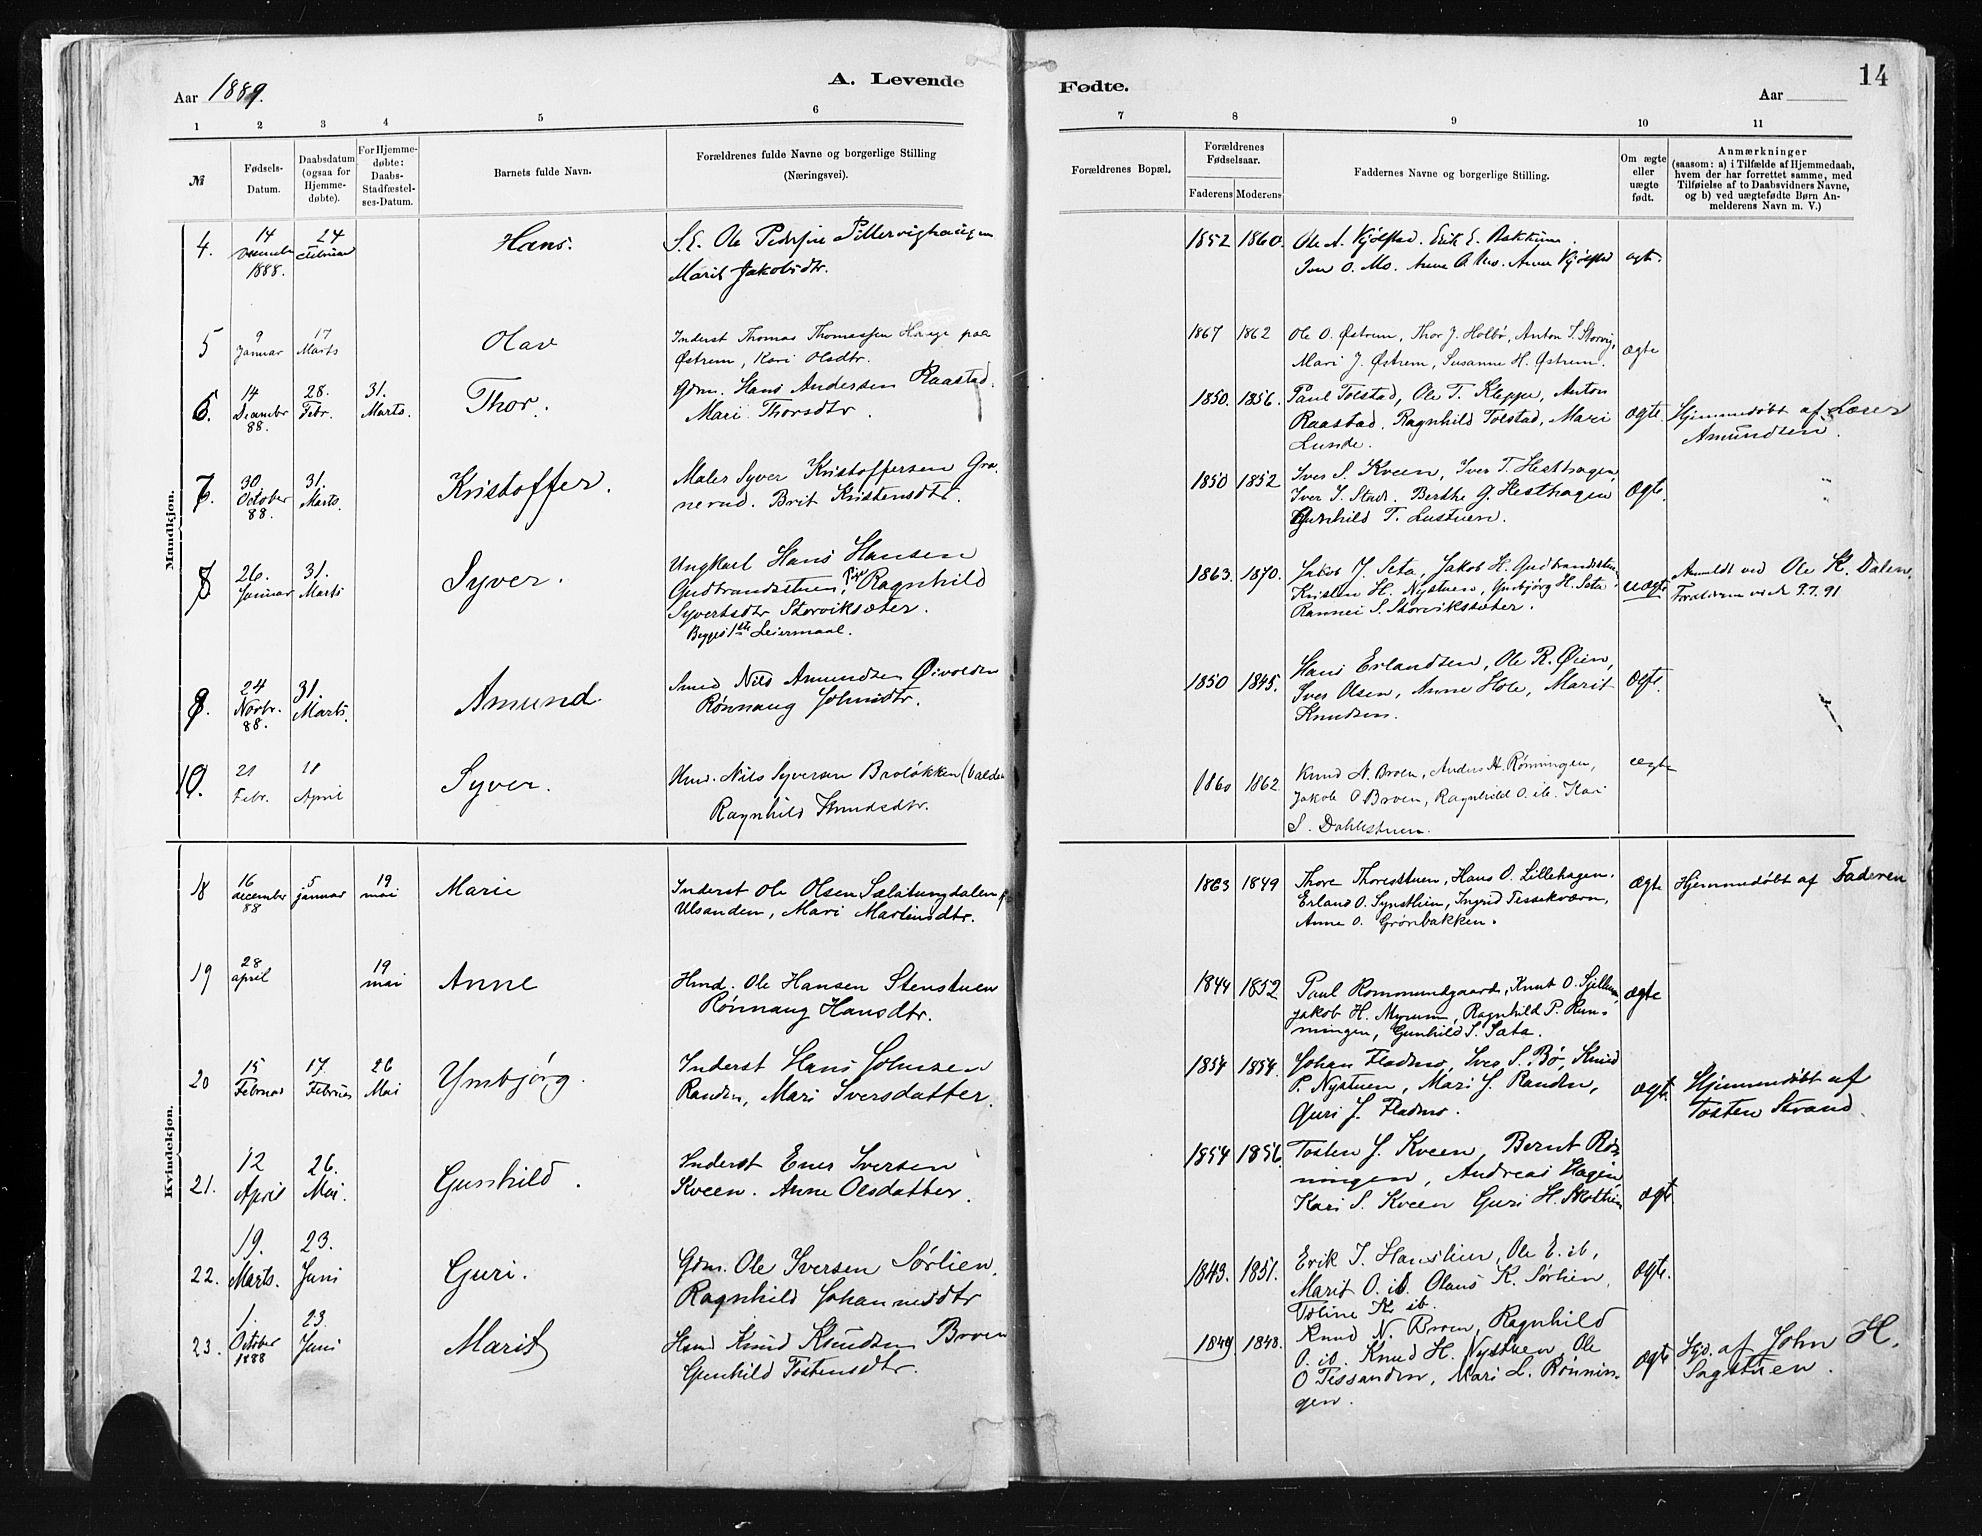 Aar 1889.
A. Levende
Fødte.
14
Aar
1 2 3 4 5 6 7 8 9 10 11
№
Fødsels-
Datum.
Daabsdatum
(ogsaa for
Hjemme-
døbte).
For Hjemme-
døbte:
Daabs-
Stadfæstel-
ses-Datum.
Barnets fulde Navn.
Forældrenes fulde Navne og borgerlige Stilling
(Næringsvei).
Forældrenes Bopæl.
Forældrenes
Fødselsaar.
Faderens Moderens
Faddernes Navne og borgerlige Stilling.
Om ægte
eller
uægte
født.
Anmærkninger
(saasom: a) i Tilfælde af Hjemmedaab,
hvem der har forrettet samme, med
Tilføielse af to Daabsvidners Navne,
og b) ved uægtefødte Børn An-
melderens Navn m. V.)
Mandkjøn.
4. 14 1888. 24 Februar Hans.
S. E. Ole Pedersen
Marit Jakobsdtr.
1852 1860. Ole A. Kjølstad. Erik E. Bakkum.
Iver O. Mo. Anne O. Mo. Anne Kjølstad
ægte.
5 9 Januar 17 Marts Olav
Inderst Thomas Thomassen Hauge paa
Østrem, Kari Olsdtr.
1867 1862 Ole O. Østrem, Thor J. Holbø, Anton S. Storvig,
Mari J. Østrem, Susanne H. Østrem.
ægte
6. 14 Decembr 88. 28. Febr. 31. Marts. Thor.
Gdm. Hans Andersen Raastad.
Mari Thorsdtr.
1850. 1856. Paul Tolstad, Ole T. Kleppe, Anton
Raastad. Ragnhild Tolstad, Mari
Lunde.
ægte. Hjemmedøbt af Lærer
Amundsen.
7. 30. October 88. 31. Marts. Kristoffer.
Maler Syver Kristoffersen Gra-
nerud. Brit Kristensdtr.
1850 1852 Iver S. Kveen, Iver T. Hesthagen,
Iver I. Stad. Berthe G. Hesthagen
Gunhild T. Lustuen.
ægte. "
8 26. Januar 31. Marts Syver.
Ungkarl Hans Hansen
Gudbrandsstuen, Pige Ragnhild
Syversdtr Storviksæter.
Begges 1ste Leiermaal.
1863. 1870. Jakob J. Seta, Jakob H. Gudbrandsstuen,
Kristen H. Nystuen, Ymbjørg H. Seta
Rannei S. Storviksæter.
uægte Anmeldt ved Ole K. Dalen.
9.7.91
9. 24 Novbr. 88. 31. Marts. Amund.
Smed Nils Amundsen Øivolden
Rønnaug Johnsdtr.
1850 1845. Hans Erlandsen, Ole R. Øien,
Iver Olsen, Anne Hole, Marit
Knudsen.
ægte.
10. 21 Febr. 18 April Syver.
Hmd. Nils Syversen Broløkken (Valden
Ragnhild Knudsdtr.
1860 1862. Knud N. Broen, Anders H. Rønningen,
Jakob O Broen, Ragnhild O. ib. Kari
S. Dahlestuen.
ægte
Kvindekjøn.
18 16 december 88 5 januar 19 mai Marie
Inderst Ole Olsen Sælatungdalen
Ulsanden, Mari Martinsdtr.
1863 1849 Thore Thorestuen, Hans O. Lillehagen.
Erland O. Synstlien, Ingrid Tessekværn,
Anne O. Grønbakken.
ægte Hjemmedøbt af Faderen
19 28 april 19 mai Anne
Hmd. Ole Hansen Stenstuen
Rønnaug Hansdtr.
1844 1852 Paul Rommundgaard, Knut O.
Jakob H. Myrum, Ragnhild P. Røn-
ningen, Gunhild S. Sata.
ægte
20 15 Februar 17. Februar 26 Mai Ymbjørg.
Inderst Hans Johnsen
Randen, Mari Iversdatter.
1854 1854. Johan Fladmo, Iver S. Bø, Knud
P. Nystuen, Mari J. Randen,
Guri J. Fladmo.
ægte. Hjemmedøbt af
Tosten Strand.
21. 12 April 26. Mai. Gunhild.
Inderst Ener Iversen
Kveen. Anne Olsdatter.
1854 1856. Tosten J. Kveen, Bernt Røn-
ningen, Andreas Hagen,
Kari S. Kveen Guri H.
ægte
22. 19. Marts. 23. Juni Guri.
Gdm. Ole Iversen Sørlien.
Ragnhild Johannesdtr
1843. 1851. Erik I. Hanslien, Ole E. ib,
Marit O. ib. Olaus K. Sørlien,
Toline K. ib.
ægte.
23. 1. October 1888 23. Juni Marit
Hmd Knud Knudsen Broen
Gunhild Tostensdtr.
1849 1848. Knud N. Broen, Ragnhild
O. ib. Knud H. Nystuen, Ole
O Tessanden, Mari L. Rønnin-
gen.
ægte Hjd. af John H.
Sagstuen.